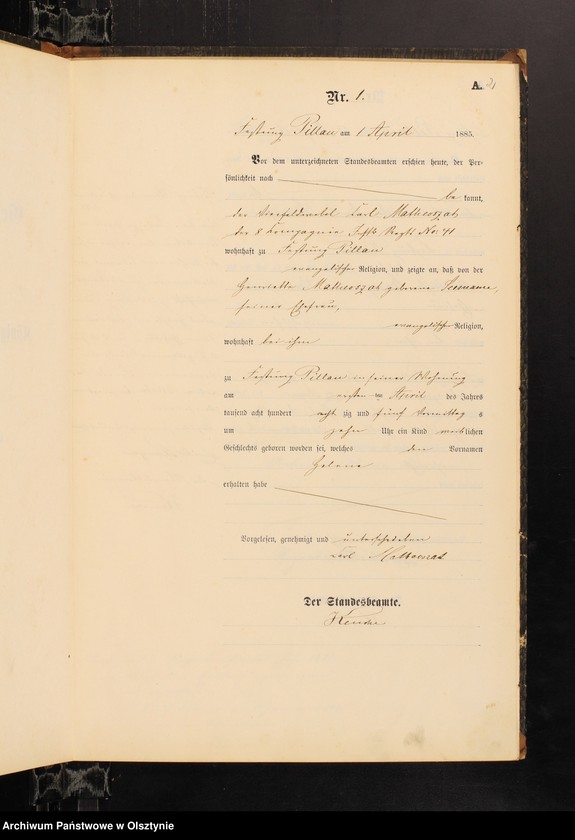 A. 2
Nr. 1.
Festung Pillau am 1 April 1885.
Vor dem unterzeichneten Standesbeamten erschien heute, der Per-
sönlichkeit nach
be kannt,
der Vizefeldwebel Carl Matheoszat
der 8 Compagnie Regts No: 41
wohnhaft zu Festung Pillau
evangelischer Religion, und zeigte an, daß von der
Henriette Matheoszat geborene
seiner Ehefrau,
evangelischer Religion,
wohnhaft bei ihm
zu Festung Pillau in seiner Wohnung
am ersten April des Jahres
tausend acht hundert acht zig und fünf Vormittag s
um zehn Uhr ein Kind weiblichen
Geschlechts geboren worden sei, welches den Vornamen
Helene
erhalten habe
Vorgelesen, genehmigt und unterschrieben
Carl Matheoszat
Der Standesbeamte.
Archiwum Państwowe w Olsztynie